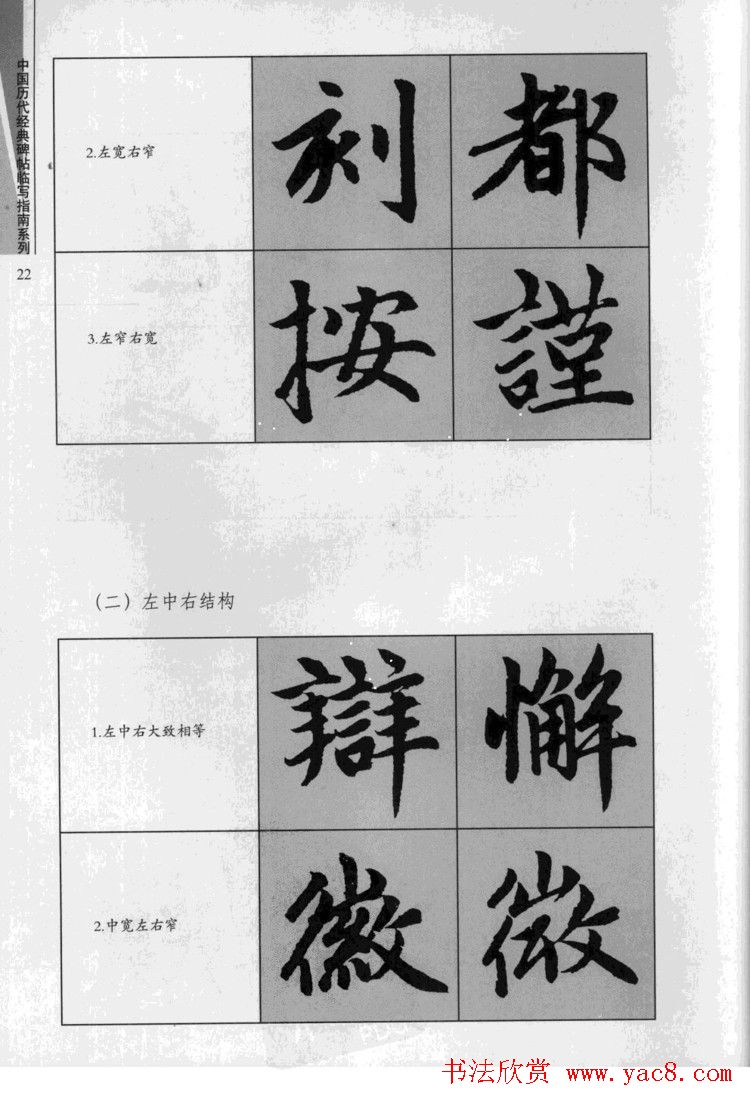 中国历代经典碑帖临写指南系列
22
2.左宽右窄
刻 都
3.左窄右宽
按 謹
（二）左中右结构
1.左中右大致相等
辯 懈
2.中宽左右窄
徽 微
书法欣赏 www.yac8.com